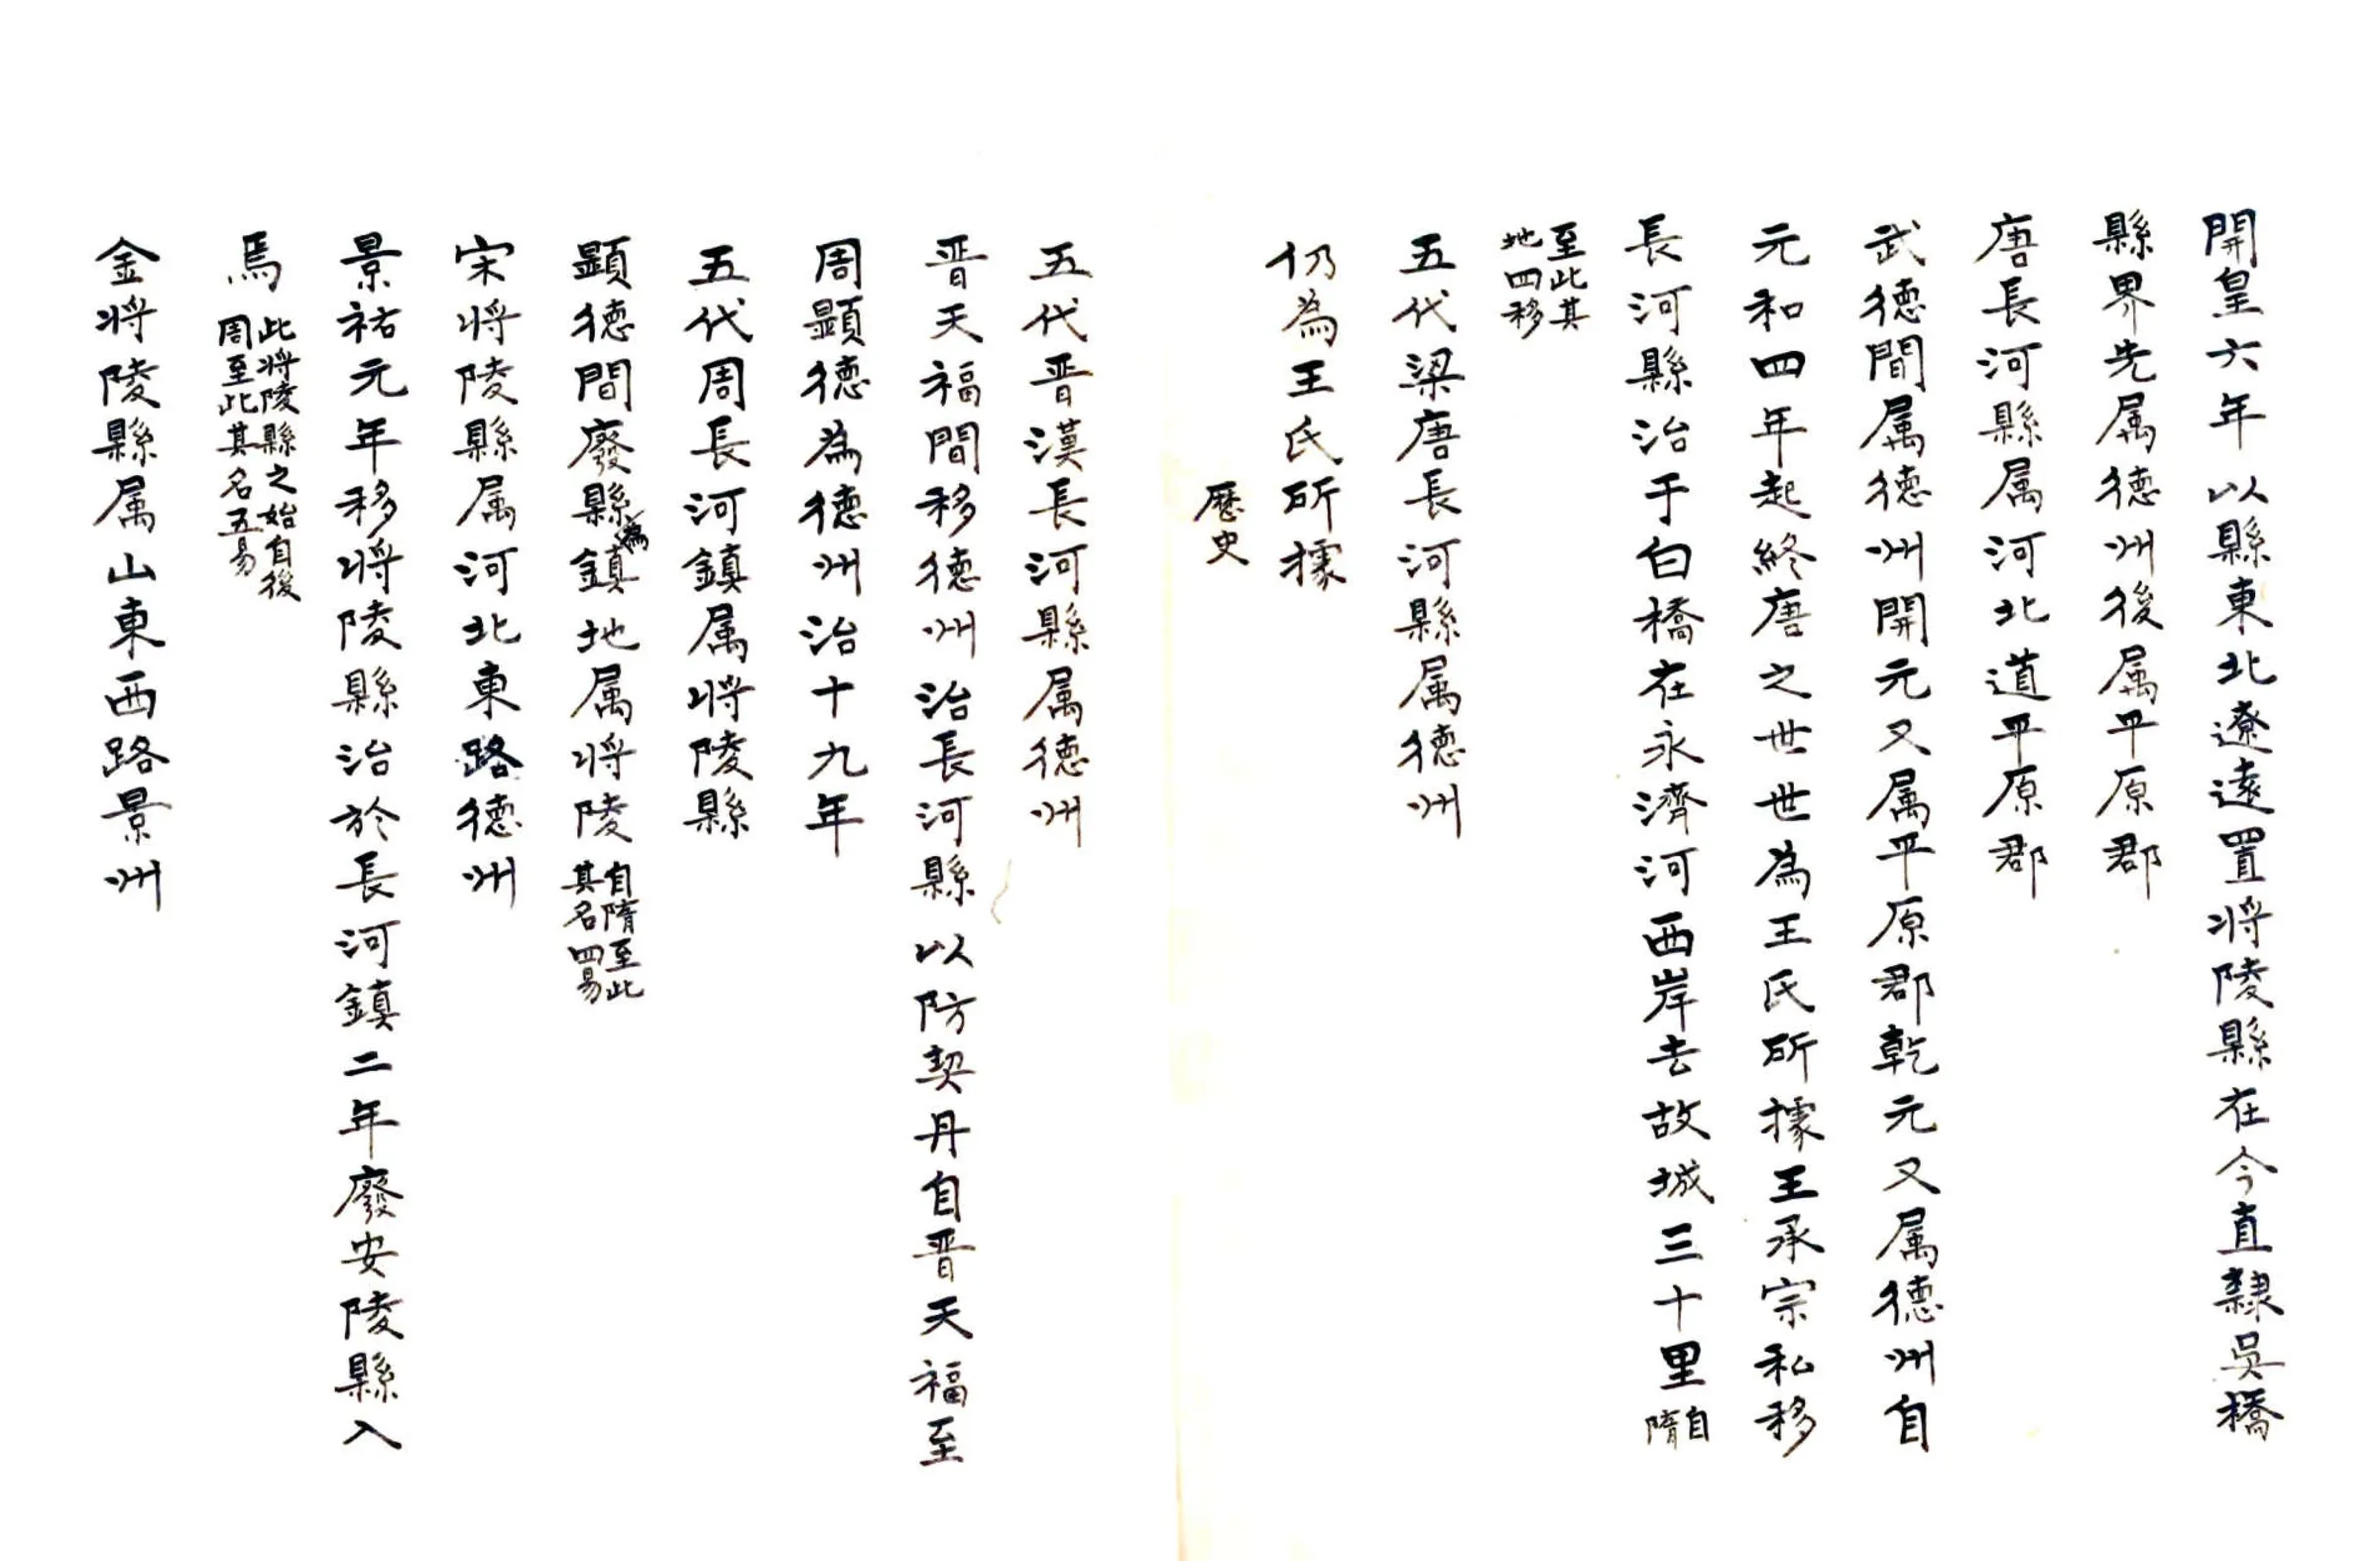 開皇六年以縣東北遼遠置将陵縣在今直隸吳橋
縣界先属德州後属平原郡
唐長河縣属河北道平原郡
武德間属德州開元又属平原郡乾元又属德州自
元和四年起終唐之世世為王氏所據王承宗私移
長河縣治于白橋在永濟河西岸去故城三十里自隋
至此其
地四移
五代梁唐長河縣属德州
仍為王氏所據
歷史
五代晋漢長河縣属德州
晋天福間移德州治長河縣以防契丹自晋天福至
周顕德為德州治十九年
五代周長河鎮属将陵縣
顕德間廢縣為鎮地属将陵自隋至此
其名四易
宋将陵縣属河北東路德州
景祐元年移将陵縣治於長河鎮二年廢安陵縣入
焉此将陵縣之始自後
周至此其名五易
金将陵縣属山東西路景州